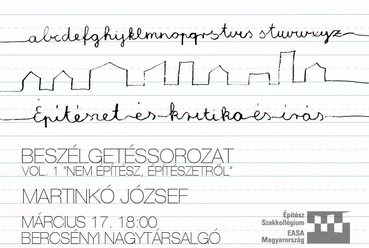 abcdefghijklmnopqrstvrs stuvwxyz
Építészet és kritika és írás
BESZÉLGETÉSSOROZAT
VOL. 1 "NEM ÉPÍTÉSZ, ÉPÍTÉSZETRŐL"
MARTINKÓ JÓZSEF
MÁRCIUS 17. 18:00
BERCSÉNYI NAGYTÁRSALGÓ
Építész
Szakkollégium
EASA
Magyarország